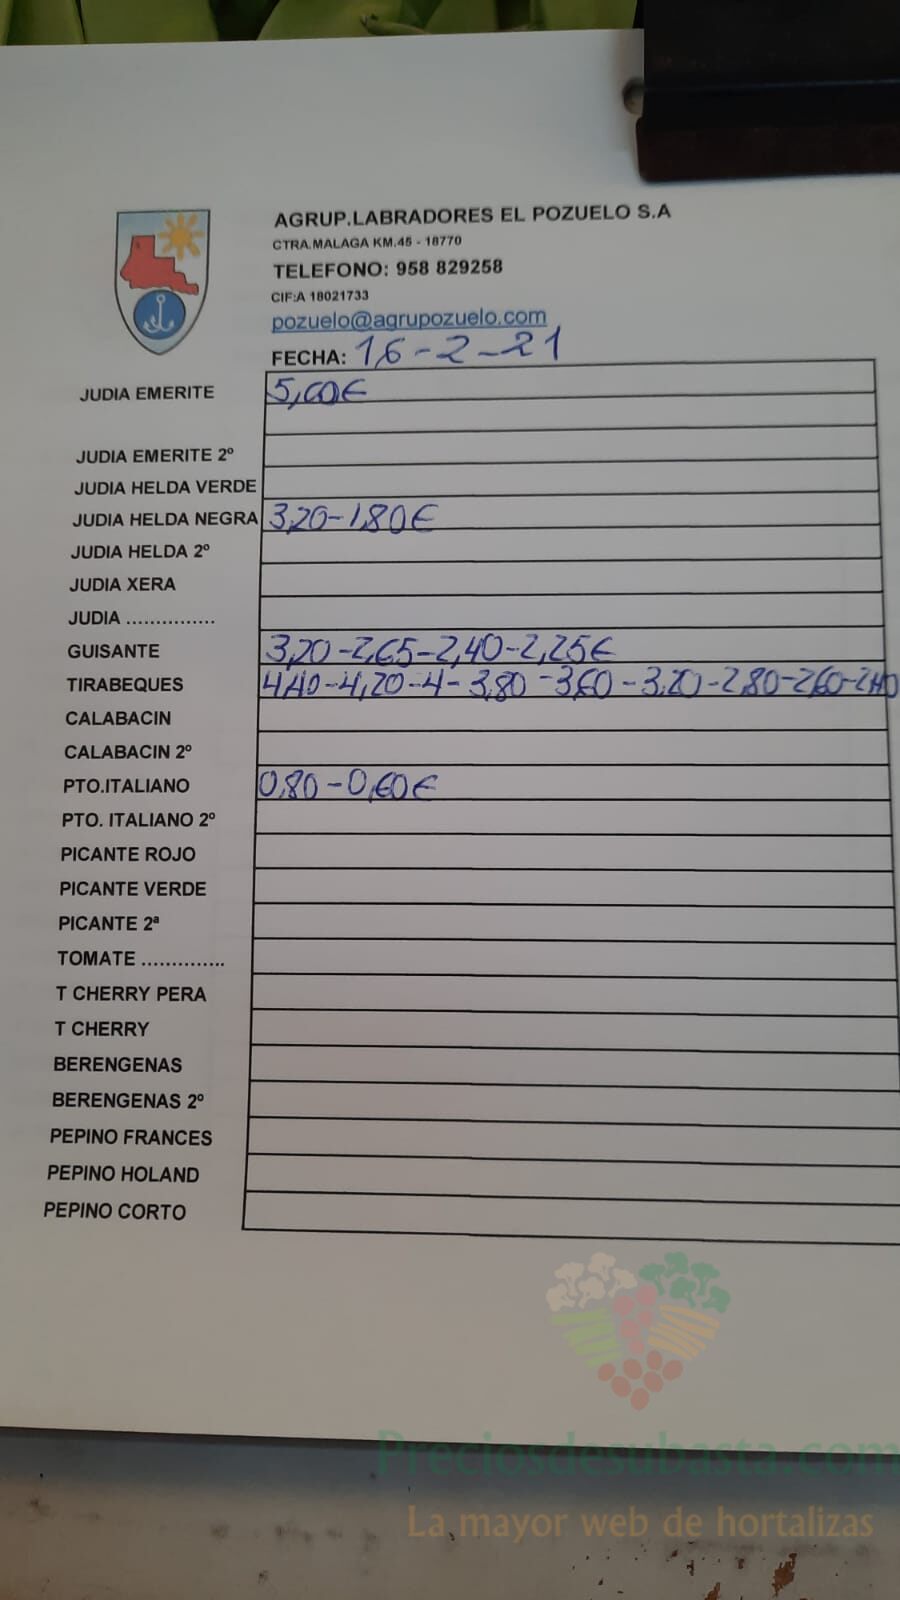 AGRUP.LABRADORES EL POZUELO S.A
CTRA.MALAGA KM.45 - 18770
TELEFONO: 958 829258
CIF:A 18021733
pozuelo@agrupozuelo.com
FECHA: 16-2-21
JUDIA EMERITE 5,00€
JUDIA EMERITE 2º
JUDIA HELDA VERDE
JUDIA HELDA NEGRA 3,20-1,80€
JUDIA HELDA 2º
JUDIA XERA
JUDIA ...............
GUISANTE 3,20-2,65-2,40-2,25€
TIRABEQUES 4,40-4,20-4-3,80-3,60-3,20-2,80-2,60-2,40
CALABACIN
CALABACIN 2º
PTO.ITALIANO 0,80-0,60€
PTO. ITALIANO 2º
PICANTE ROJO
PICANTE VERDE
PICANTE 2ª
TOMATE ..............
T CHERRY PERA
T CHERRY
BERENGENAS
BERENGENAS 2º
PEPINO FRANCES
PEPINO HOLAND
PEPINO CORTO
Preciosdesubasta.com
La mayor web de hortalizas